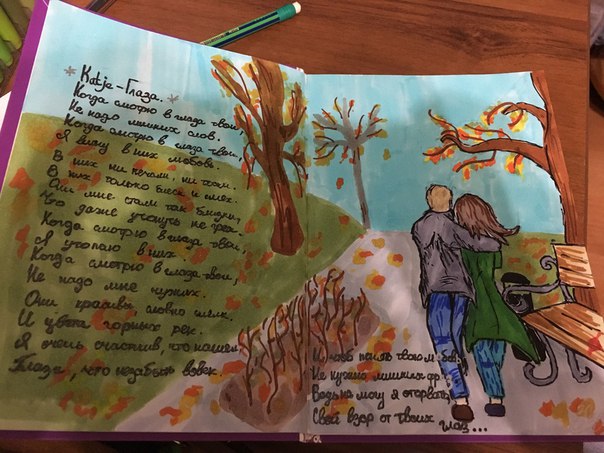 * Katje - Глаза. *
Когда смотрю в глаза твои,
Не надо лишних слов.
Когда смотрю в глаза твои,
Я вижу в них любовь.
В них ни печали, ни тоски.
В них только блеск и смех.
Они мне стали так близки,
Что даже утонуть не грех.
Когда смотрю в глаза твои,
Я утопаю в них.
Когда смотрю в глаза твои,
Не надо мне чужих.
Они красивы, словно шелк.
И цвета горных рек.
Я очень счастлив, что нашел
Глаза, что незабыть вовек.
И чтоб понять твою любовь
Не нужно лишних фраз
Ведь не могу я оторвать
Свой взор от твоих глаз...